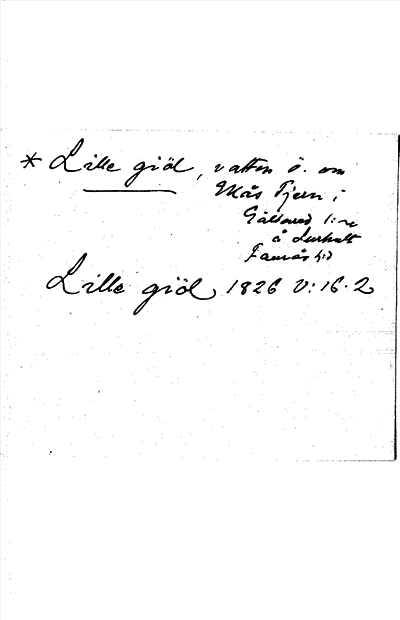 * Lille giöl, vatten ö. om
Mås Tjern i
Gällared l:r
å Lurhult
Fa l:d
Lille giöl 1826 V:16.2